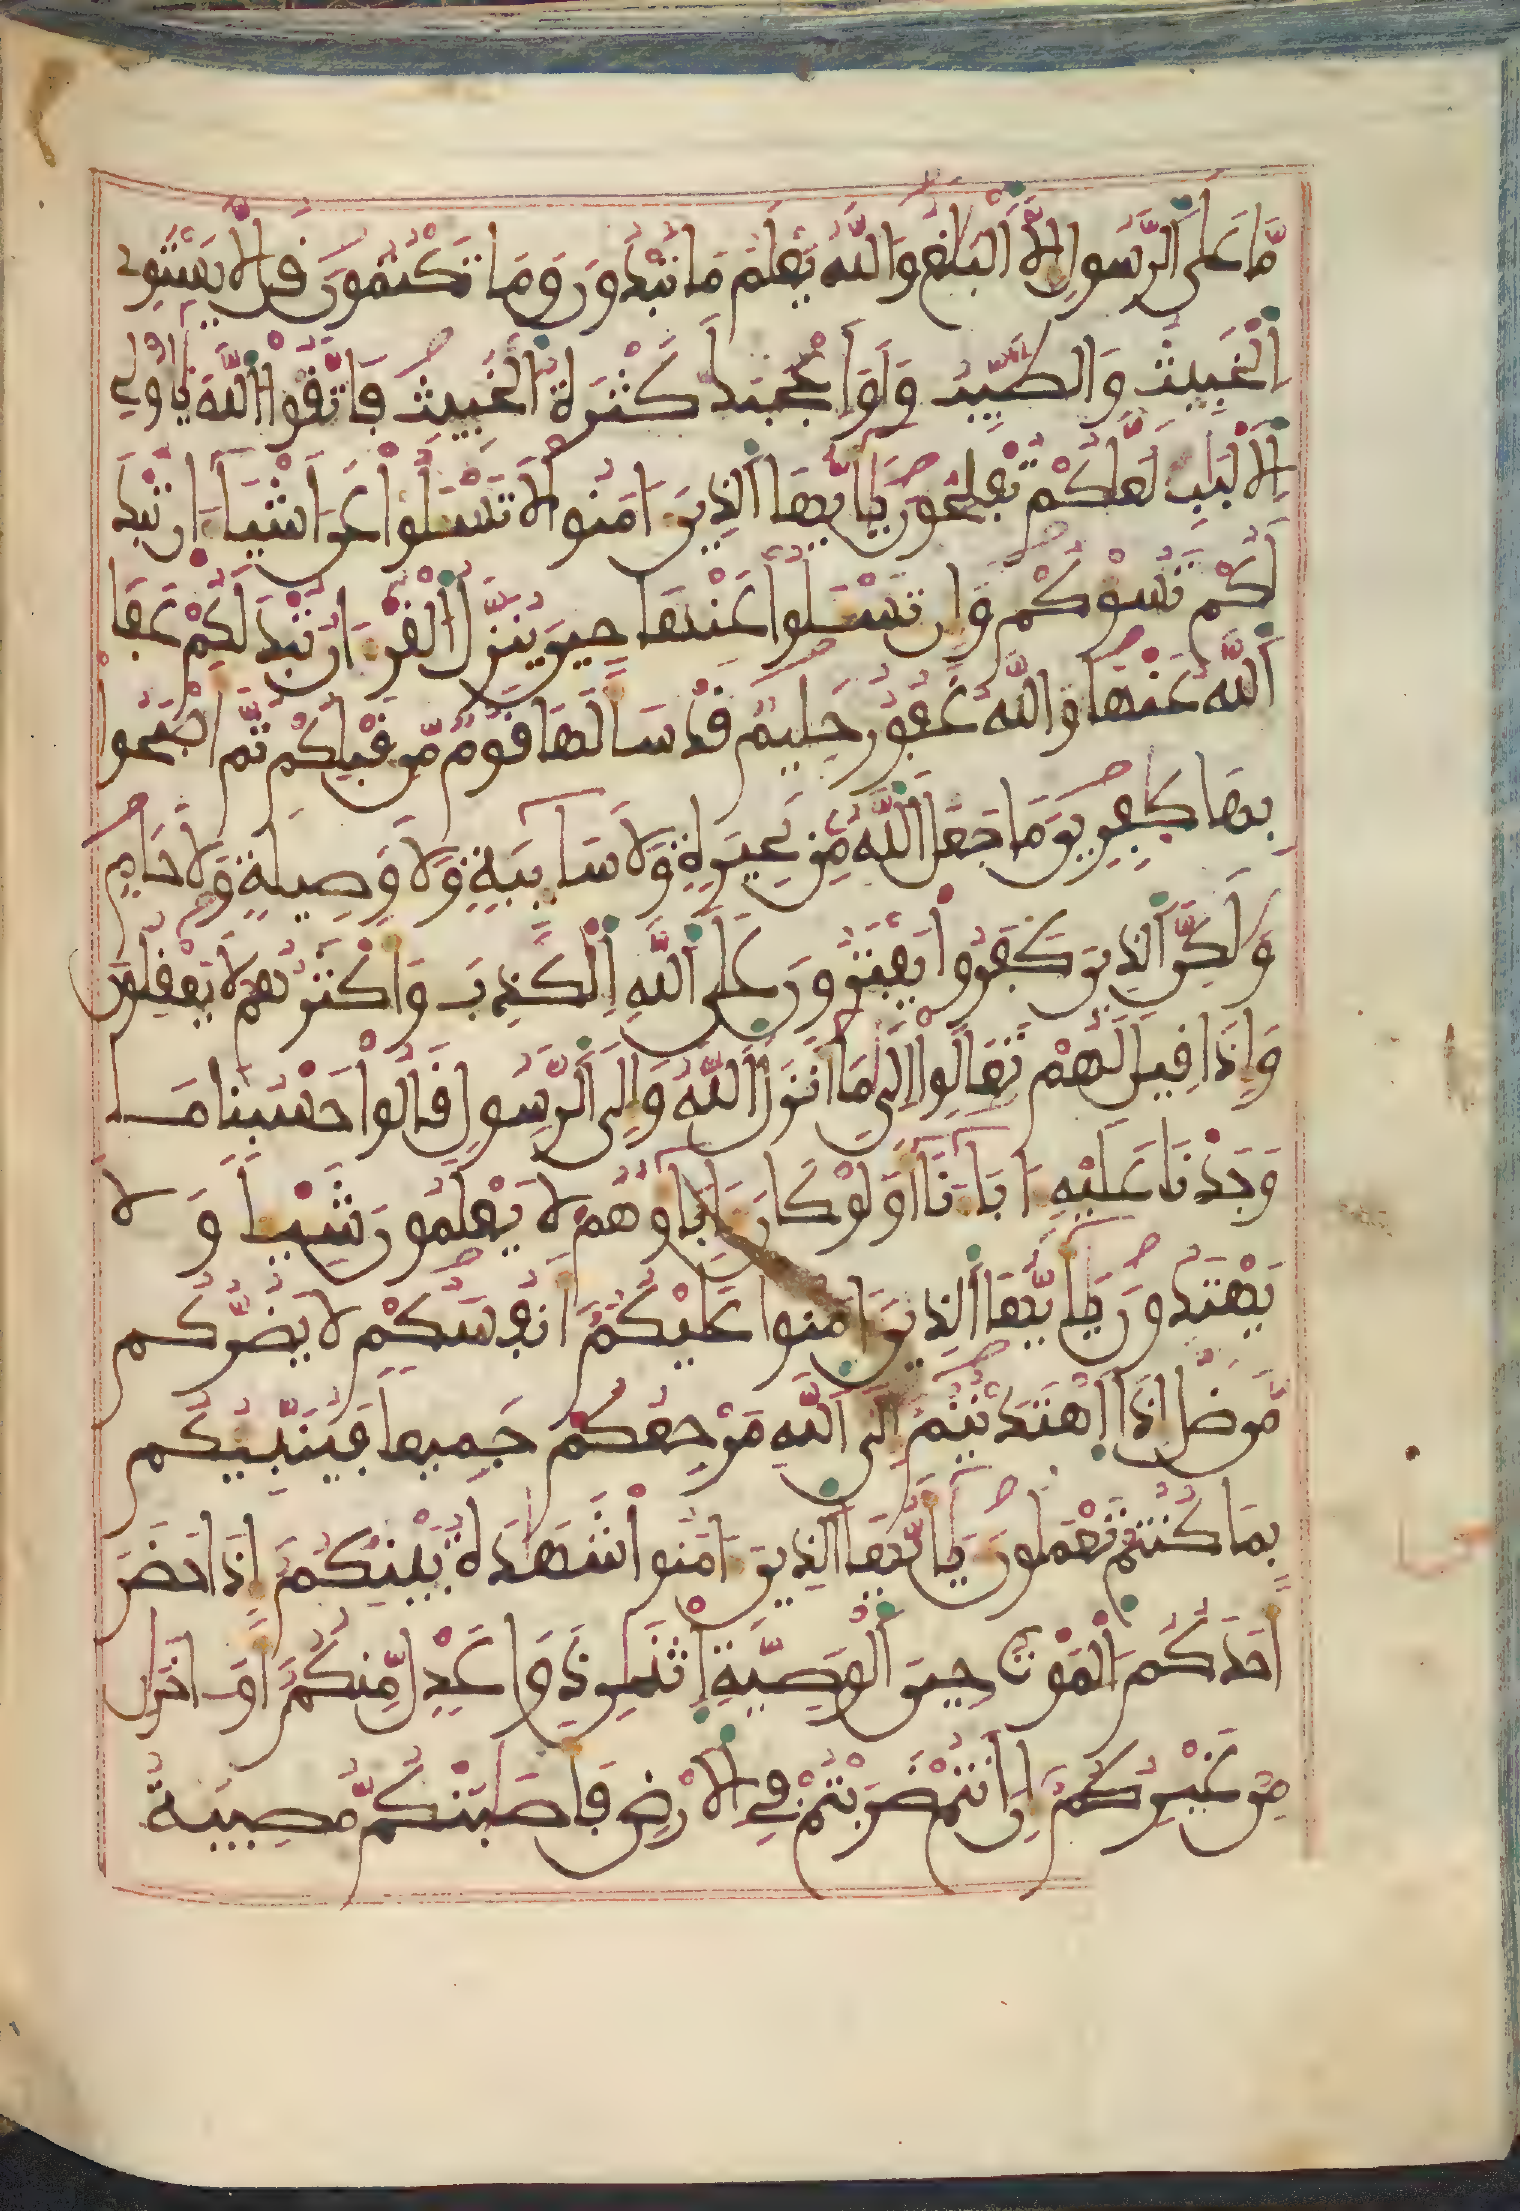 مَّا عَلَى اَلرَّسُولِ إِلَّا اَلْبَلَٰغُ وَاللَّهُ يَعْلَمُ مَا تُبْدُونَ وَمَا تَكْتُمُونَ قُل لَّا يَسْتَوِے
اِلْخَبِيثُ وَالطَّيِّبُ وَلَوَ اَعْجَبَكَ كَثْرَةُ اُلْخَبِيثِ فَاتَّقُواْ اُللَّهَ يَٰأُوْلِے
اِلَالْبَٰبِ لَعَلَّكُمْ تُفْلِحُونَ يَٰأَيُّهَا اَلذِينَ ءَامَنُواْ لَا تَسْـَٔلُواْ عَنَ اَشْيَآءَ ان تُبْدَ
لَكُمْ تَسُؤْكُمْ وَإِن تَسْـَٔلُواْ عَنْهَا حِينَ يُنَزَّلُ اُلْقُرْءَانُ تُبْدَ لَكُمْ عَفَا
اَللَّهُ عَنْهَا وَاللَّهُ غَفُورٌ حَلِيمٌ قَدْ سَأَلَهَا قَوْمٌ مِّن قَبْلِكُمْ ثُمَّ أَصْبَحُواْ
بِهَا كَٰفِرِينَ مَا جَعَلَ اَللَّهُ مِنۢ بَحِيرَةٍ وَلَا سَآئِبَةٍ وَلَا وَصِيلَةٍ وَلَا حَامٍ
وَلَٰكِنَّ اَلذِينَ كَفَرُواْ يَفْتَرُونَ عَلَى اَللَّهِ اِلْكَذِبَ وَأَكْثَرُهُمْ لَا يَعْقِلُونَ
وَإِذَا قِيلَ لَهُمْ تَعَالَوِاْ اِلَىٰ مَا أَنزَلَ اَللَّهُ وَإِلَى اَلرَّسُولِ قَالُواْ حَسْبُنَا مَا
وَجَدْنَا عَلَيْهِ ءَابَآءَنَا أَوَلَوْ كَانَ ءَابَآؤُهُمْ لَا يَعْلَمُونَ شَيْـًٔا وَلَا
يَهْتَدُونَ يَٰأَيُّهَا اَلذِينَ ءَامَنُواْ عَلَيْكُمُۥٓ أَنفُسَكُمْ لَا يَضُرُّكُم
مَّن ضَلَّ إِذَا اَهْتَدَيْتُمُۥٓ إِلَى اَللَّهِ مَرْجِعُكُمْ جَمِيعًا فَيُنَبِّئُكُم
بِمَا كُنتُمْ تَعْمَلُونَ يَٰأَيُّهَا اَلذِينَ ءَامَنُواْ شَهَٰدَةُ بَيْنِكُمُۥٓ إِذَا حَضَرَ
أَحَدَكُمُ اُلْمَوْتُ حِينَ اَلْوَصِيَّةِ اِثْنَٰنِ ذَوَا عَدْلٍ مِّنكُمُۥٓ أَوَ اٰخَرَٰنِ
مِنْ غَيْرِكُمُۥٓ إِنَ اَنتُمْ ضَرَبْتُمْ فِے اِلَارْضِ فَأَصَٰبَتْكُم مُّصِيبَةُ